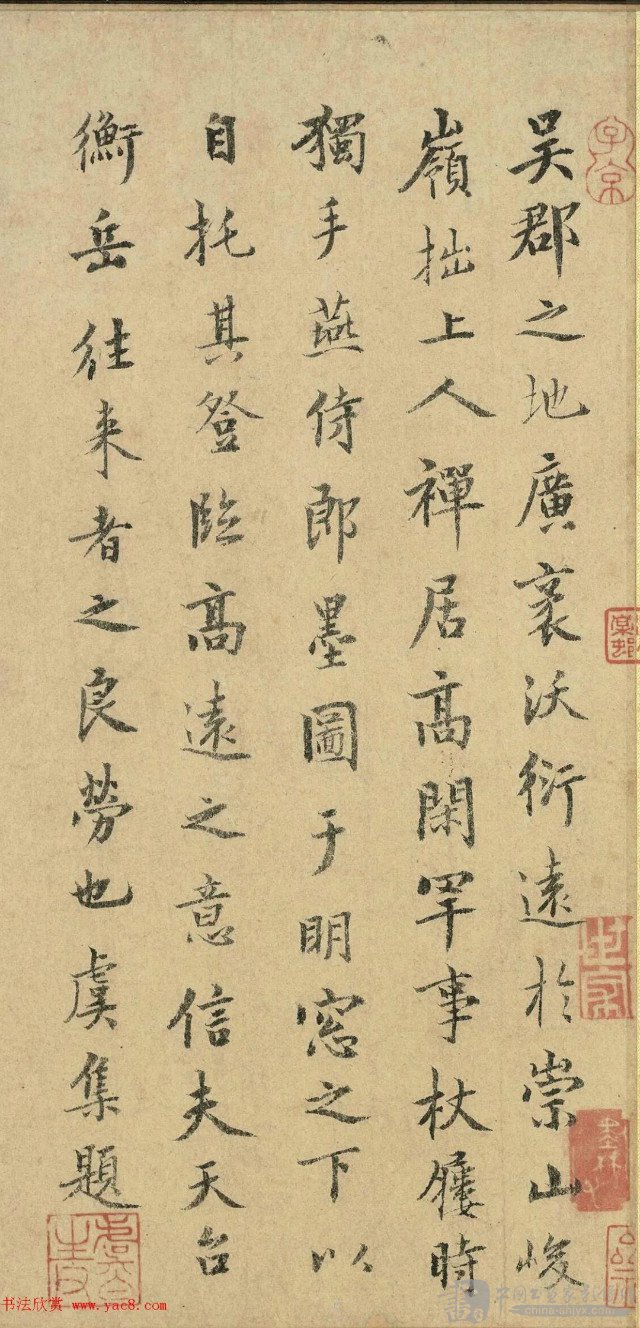 吳郡之地廣袤沃衍遠於崇山峻
嶺拙上人禪居高閑罕事杖屨時
獨手燕侍郎墨圖于明窓之下以
自托其登臨高遠之意信夫天台
衡岳往來者之良勞也虞集題
书法欣赏 www.yac8.com
china-anjyx.com